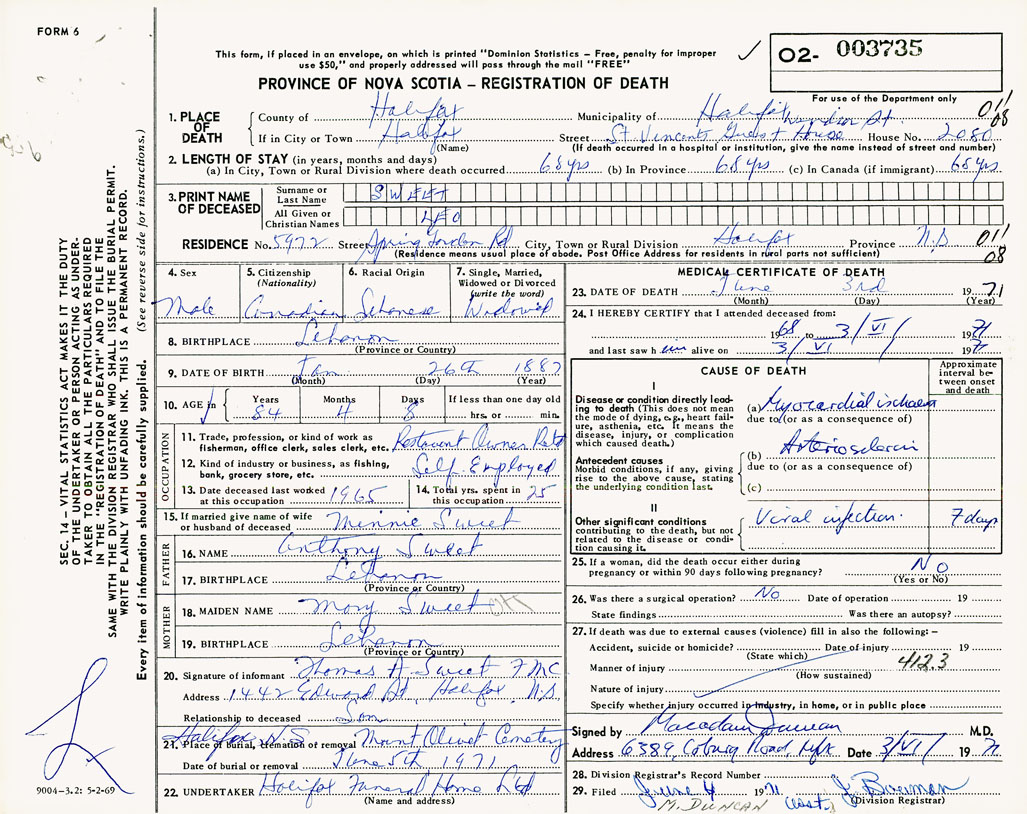 FORM 6
This form, if placed in an envelope, on which is printed "Dominion Statistics – Free, penalty for improper
use $50," and properly addressed will pass through the mail "FREE"
O2- 003735
PROVINCE OF NOVA SCOTIA – REGISTRATION OF DEATH
For use of the Department only
011
08
1. PLACE OF DEATH
County of Halifax Municipality of Halifax
If in City or Town Halifax Street St. Vincents Guest House Windsor St. House No. 2080
(Name) (If death occurred in a hospital or institution, give the name instead of street and number)
2. LENGTH OF STAY (in years, months and days)
(a) In City, Town or Rural Division where death occurred 68 yrs (b) In Province 68 yrs (c) In Canada (if immigrant) 68 yrs
3. PRINT NAME OF DECEASED
Surname or Last Name SWEET
All Given or Christian Names LEO
RESIDENCE No. 5972 Street Spring Garden Rd City, Town or Rural Division Halifax Province N.S 011
(Residence means usual place of abode. Post Office Address for residents in rural parts not sufficient) 08
4. Sex
Male
5. Citizenship (Nationality)
Canadian
6. Racial Origin
Lebanese
7. Single, Married, Widowed or Divorced (write the word)
Widowed
8. BIRTHPLACE Lebanon
(Province or Country)
9. DATE OF BIRTH Jan 26th 1887
(Month) (Day) (Year)
10. AGE in Years 84 Months 4 Days 8 If less than one day old hrs. or min.
OCCUPATION
11. Trade, profession, or kind of work as fisherman, office clerk, sales clerk, etc. Restaurant Owner Retd
12. Kind of industry or business, as fishing, bank, grocery store, etc. Self Employed
13. Date deceased last worked at this occupation 1965
14. Total yrs. spent in this occupation 25
15. If married give name of wife or husband of deceased Minnie Sweet
FATHER
16. NAME Anthony Sweet
17. BIRTHPLACE Lebanon
(Province or Country)
MOTHER
18. MAIDEN NAME Mary Sweet
19. BIRTHPLACE Lebanon
(Province or Country)
20. Signature of informant Thomas A. Sweet
Address 1442 Edward St, Halifax, N.S.
Relationship to deceased Son
Halifax N.S
21. Place of burial, cremation or removal Mount Olivet Cemetery
Date of burial or removal June 5th 1971
22. UNDERTAKER Halifax Funeral Home Ltd
(Name and address)
MEDICAL CERTIFICATE OF DEATH
23. DATE OF DEATH June 3rd 1971
(Month) (Day) (Year)
24. I HEREBY CERTIFY that I attended deceased from:
1968 to 3/VI/ 1971
and last saw h im alive on 3/VI/ 1971
CAUSE OF DEATH
Approximate interval between onset and death
I
Disease or condition directly leading to death (This does not mean the mode of dying, e.g., heart failure, asthenia, etc. It means the disease, injury, or complication which caused death.)
(a) Myocardial ischaemia
due to (or as a consequence of)
Antecedent causes
Morbid conditions, if any, giving rise to the above cause, stating the underlying condition last.
(b) Arteriosclerosis
due to (or as a consequence of)
(c)
II
Other significant conditions
contributing to the death, but not related to the disease or condition causing it.
Viral infection. 7 days
25. If a woman, did the death occur either during pregnancy or within 90 days following pregnancy? NO
(Yes or No)
26. Was there a surgical operation? No Date of operation 19
State findings Was there an autopsy?
27. If death was due to external causes (violence) fill in also the following:–
Accident, suicide or homicide? Date of injury 19
(State which)
412.3
Manner of injury
(How sustained)
Nature of injury
Specify whether injury occurred in industry, in home, or in public place
Signed by Macadam Duncan M.D.
Address 6389, Coburg Road, Hfx Date 3/VI/ 1971
28. Division Registrar's Record Number
29. Filed June 4 1971 (asst.) J. Bowman
M. DUNCAN (Division Registrar)
SEC. 14 – VITAL STATISTICS ACT MAKES IT THE DUTY
OF THE UNDERTAKER OR PERSON ACTING AS UNDER-
TAKER TO OBTAIN ALL THE PARTICULARS REQUIRED
IN THE "REGISTRATION OF DEATH" AND TO FILE THE
SAME WITH THE DIVISION REGISTRAR WHO SHALL ISSUE THE BURIAL PERMIT.
WRITE PLAINLY WITH UNFADING INK. THIS IS A PERMANENT RECORD.
Every item of information should be carefully supplied. (See reverse side for instructions.)
9004–3.2: 5-2-69